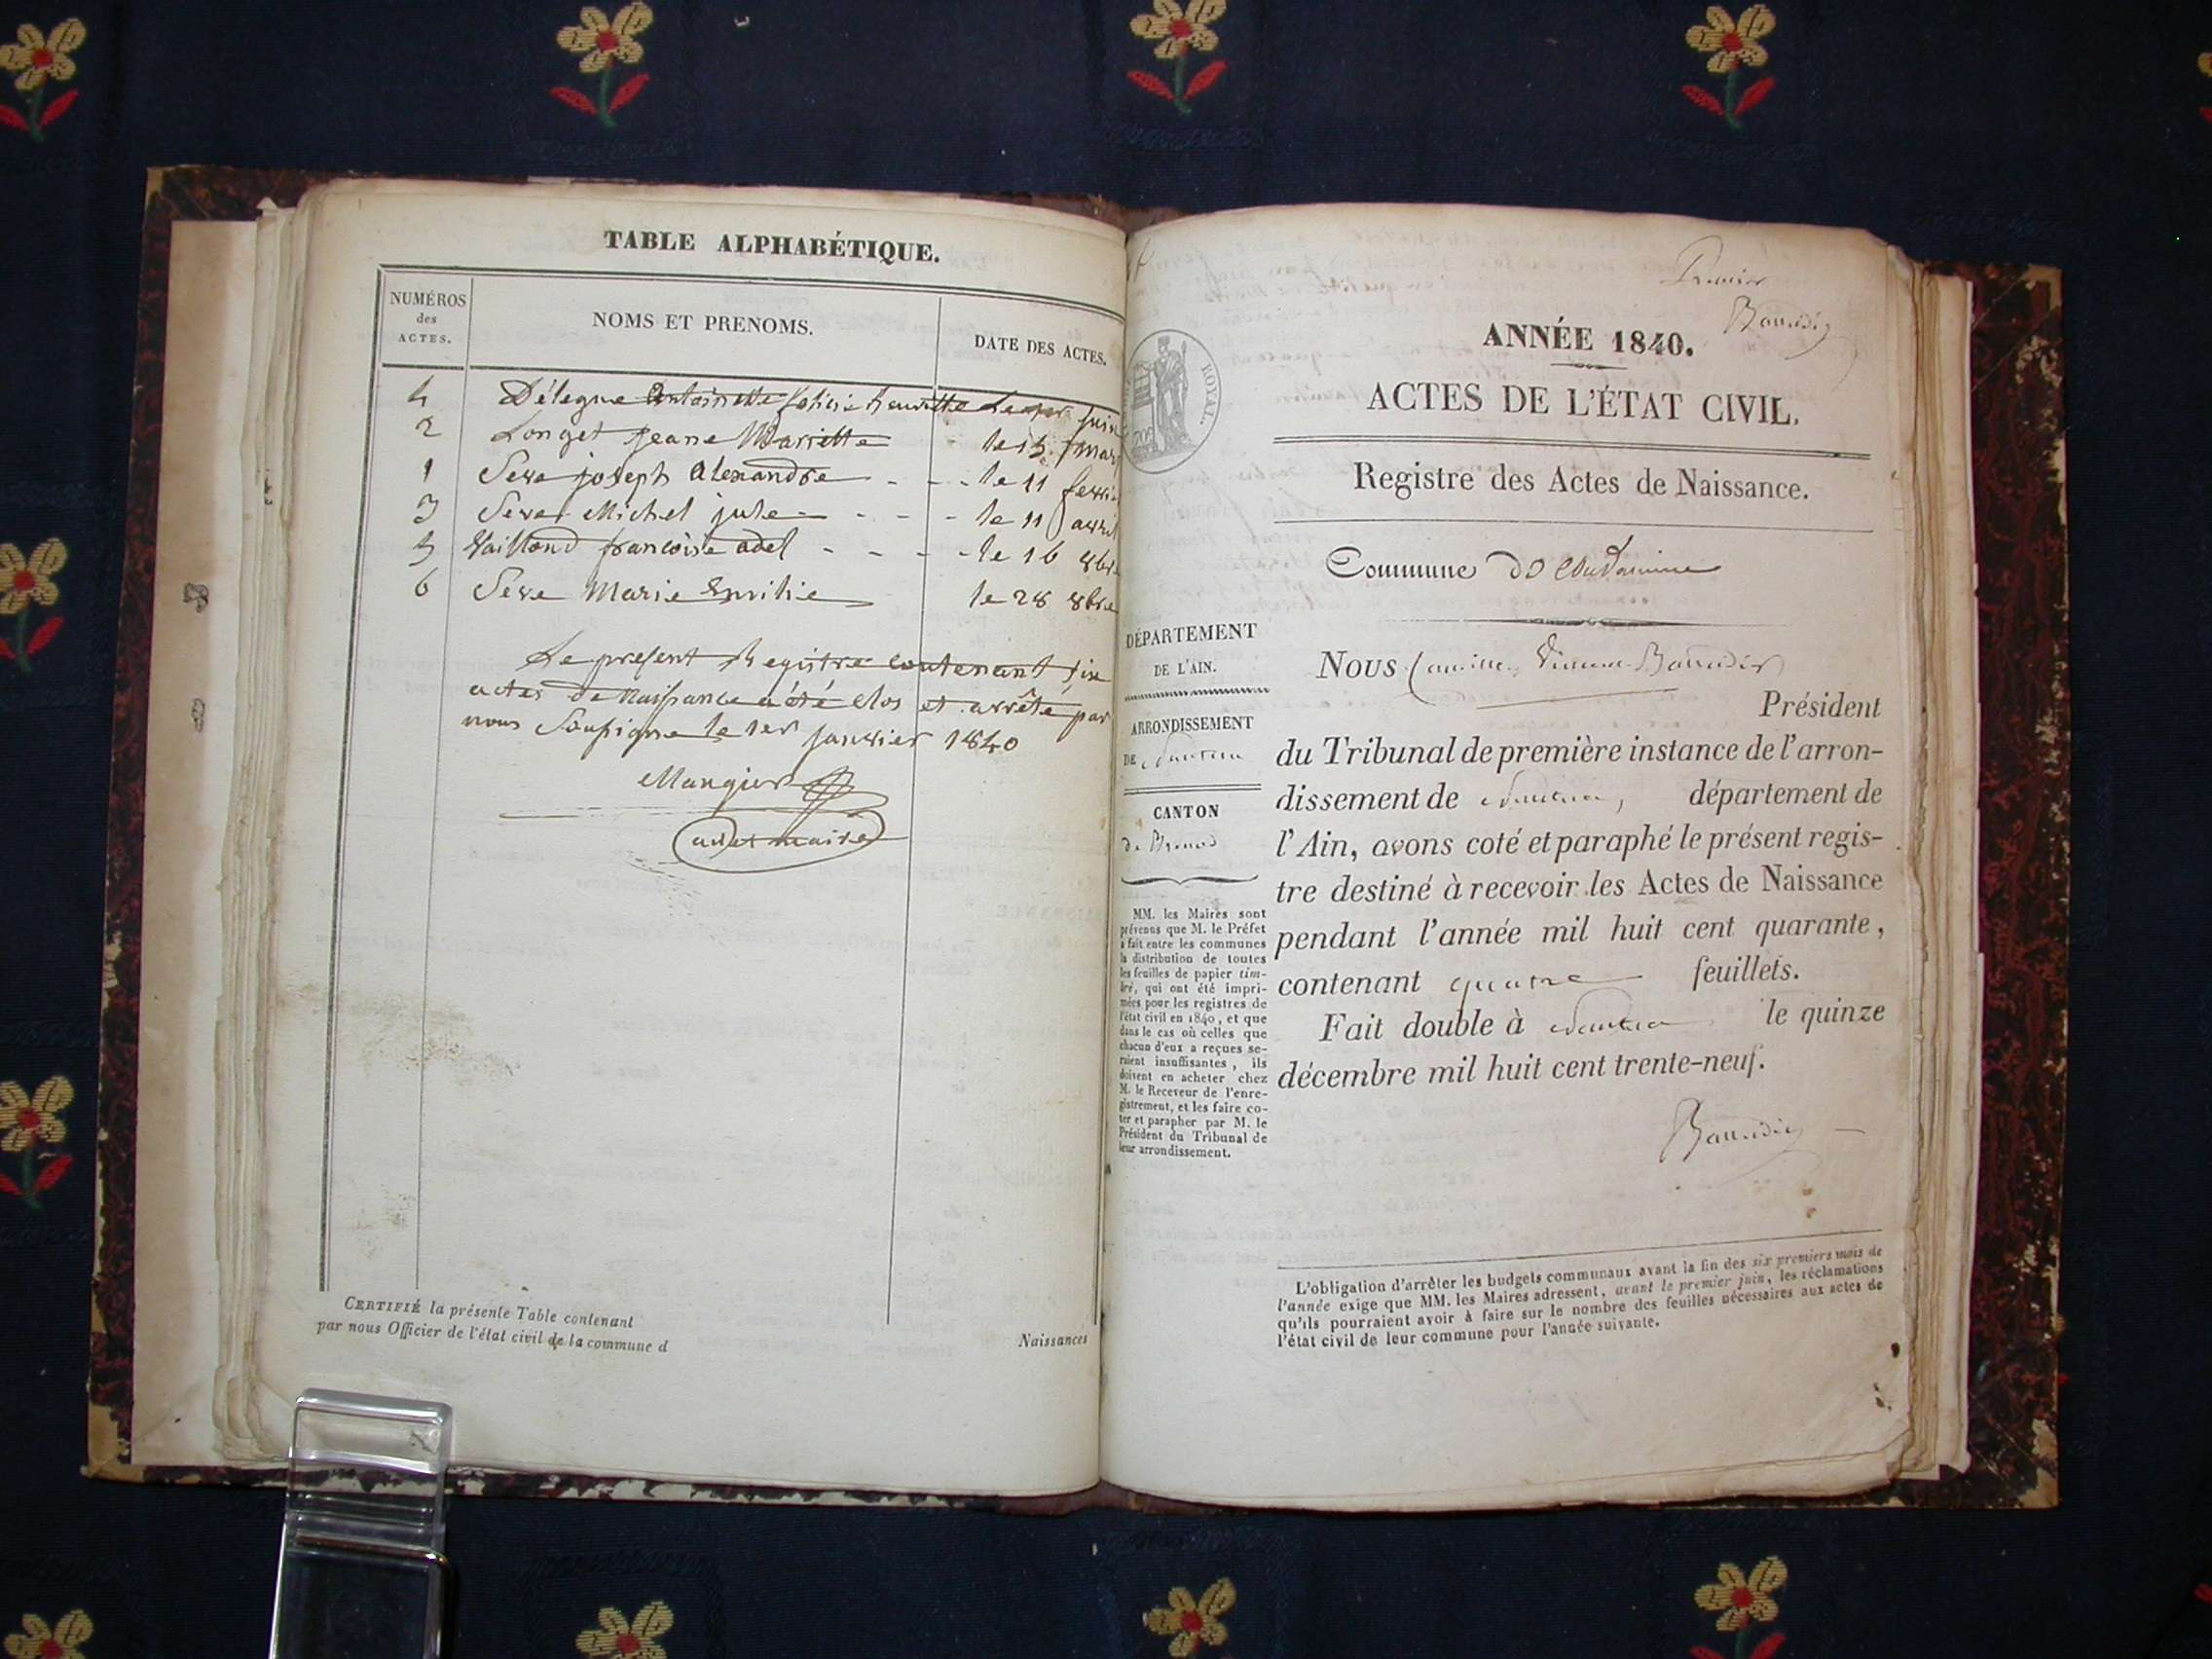 TABLE ALPHABÉTIQUE.
NUMÉROS
des
ACTES.
NOMS ET PRENOMS.
DATE DES ACTES.
4 Délegne Antoinette felicie henriette Le 1er juin
2 Longet jeane Mariette le 15 mars
1 Seve joseph Alexandre - - - le 11
3 Seve Michel jule - - - le 11 avril
5 Vailland francoise adel - - - le 16 8bre
6 Seve Marie Emilie le 28 8bre
Le présent Registre contenant six
actes de Naissance a été clos et arrêté par
nous Soussigne le 1er janvier 1840
Mangier
adjt maire
CERTIFIÉ la présente Table contenant
par nous Officier de l'état civil de la commune d
Naissances
Premier
Baudier
ROYAL.
ANNÉE 1840.
ACTES DE L'ÉTAT CIVIL.
Registre des Actes de Naissance.
Commune de
DÉPARTEMENT
DE L'AIN.
ARRONDISSEMENT
DE Nantua
CANTON
de Brenod
MM. les Maires sont
prévenus que M. le Préfet
a fait entre les communes
la distribution de toutes
les feuilles de papier tim-
bré, qui ont été impri-
mées pour les registres de
l'état civil en 1840, et que
dans le cas où celles que
chacun d'eux a reçues se-
raient insuffisantes, ils
doivent en acheter chez
M. le Receveur de l'enre-
gistrement, et les faire co-
ter et parapher par M. le
Président du Tribunal de
leur arrondissement.
NOUS Camille
Président
du Tribunal de première instance de l'arron-
dissement de Nantua, département de
l'Ain, avons coté et paraphé le présent regis-
tre destiné à recevoir les Actes de Naissance
pendant l'année mil huit cent quarante,
contenant quatre feuillets.
Fait double à Nantua le quinze
décembre mil huit cent trente-neuf.
L'obligation d'arrêter les budgets communaux avant la fin des six premiers mois de
l'année exige que MM. les Maires adressent, avant le premier juin, les réclamations
qu'ils pourraient avoir à faire sur le nombre des feuilles nécessaires aux actes de
l'état civil de leur commune pour l'année suivante.